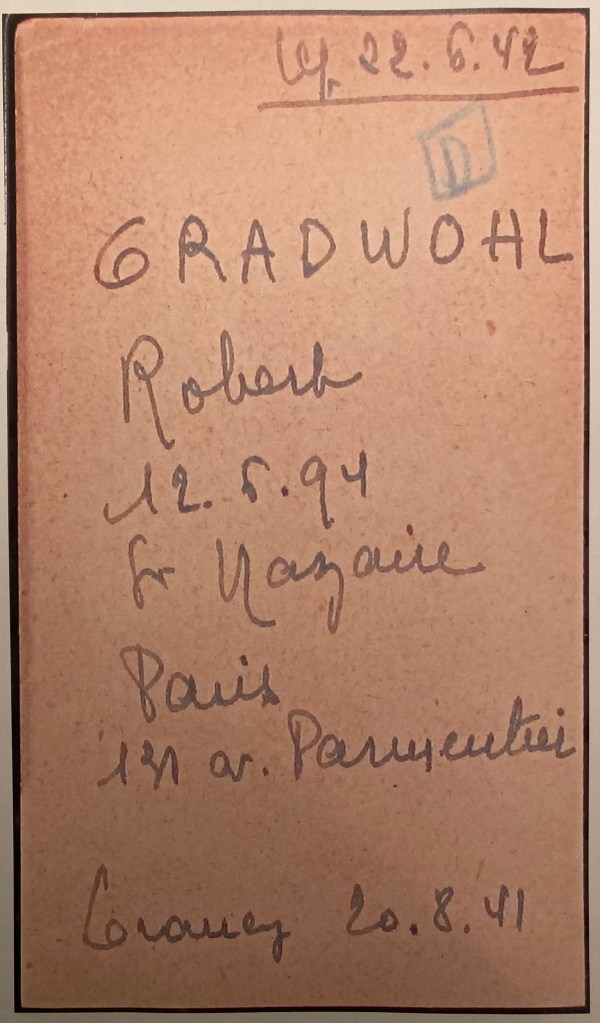 22.6.42
D
GRADWOHL
Robert
12.5.94
St Nazaire
Paris
131 av. Parmentier
Drancy 20.8.41